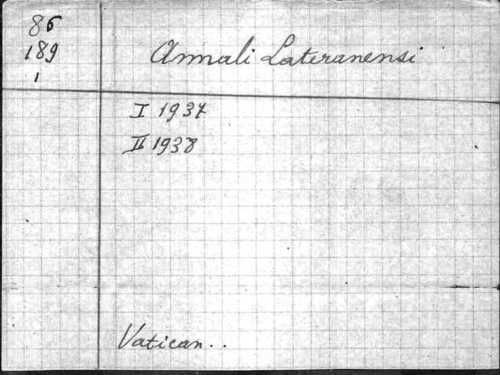 86
189
1
Annali Lateranensi
I 1937
II 1938
Vatican..